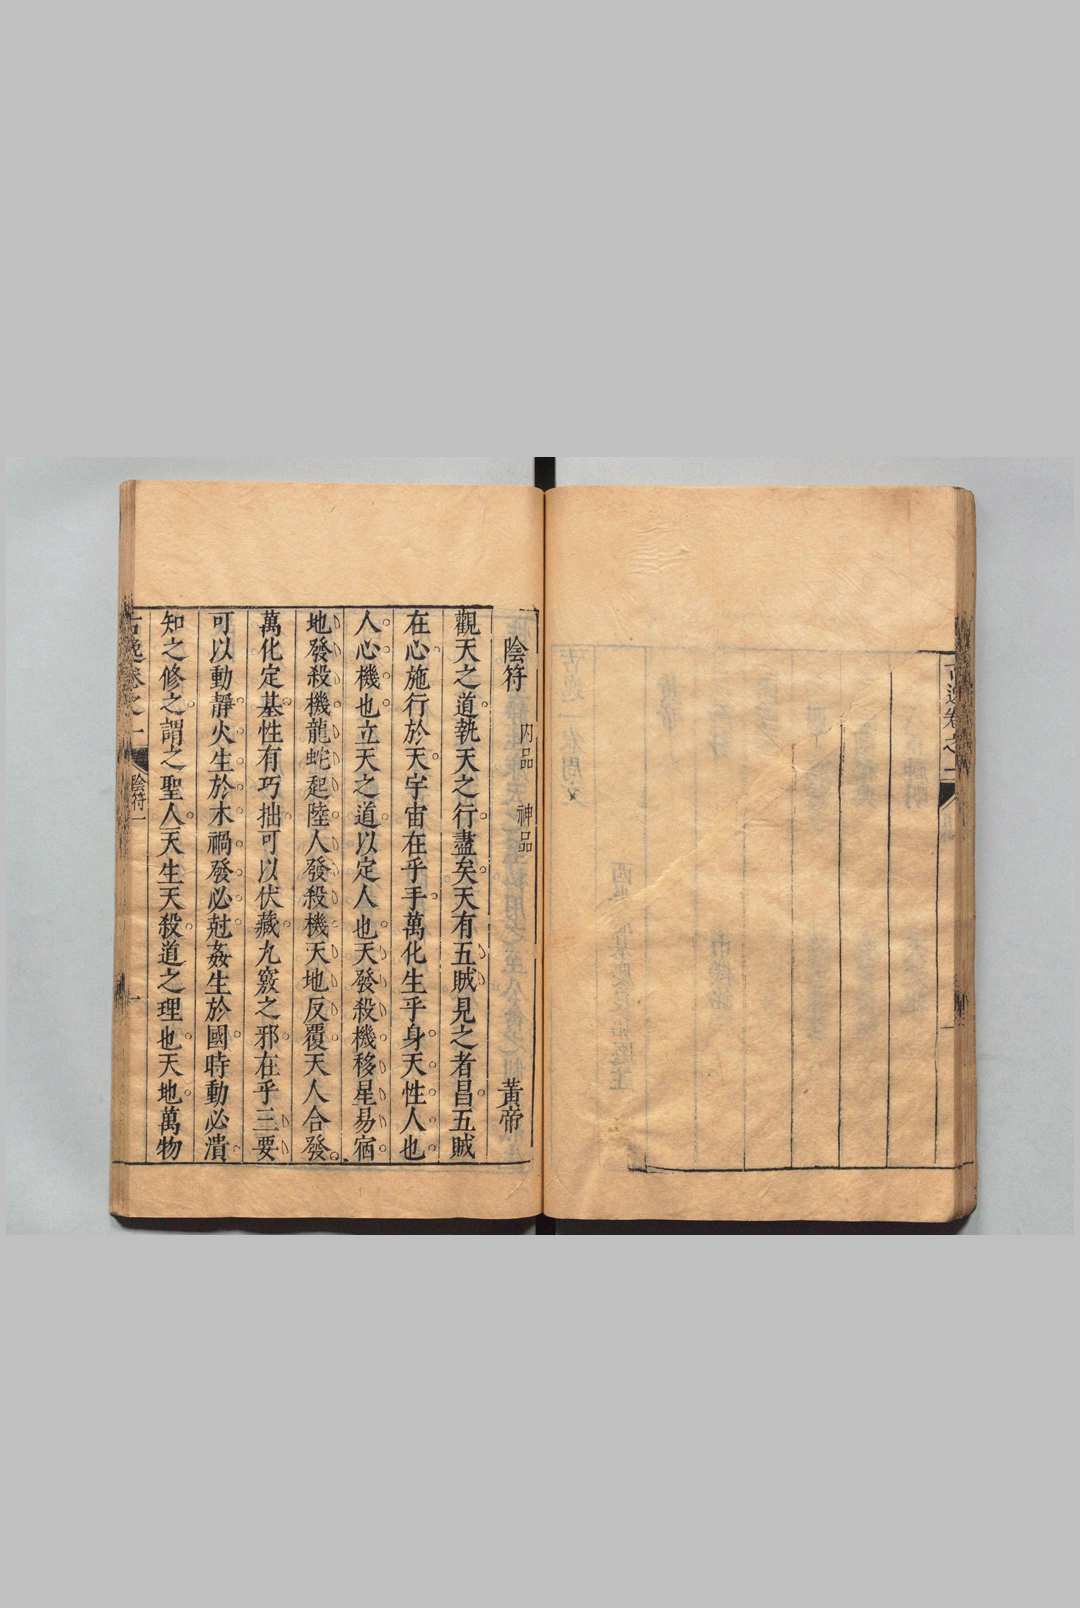 古逸卷之一
陰符 內品 神品 黃帝
觀天之道執天之行盡矣天有五賊見之者昌五賊
在心施行於天宇宙在乎手萬化生乎身天性人也
人心機也立天之道以定人也天發殺機移星易宿
地發殺機龍蛇起陸人發殺機天地反覆天人合發
萬化定基性有巧拙可以伏藏九竅之邪在乎三要
可以動靜火生於木禍發必尅姦生於國時動必潰
知之修之謂之聖人天生天殺道之理也天地萬物
古逸卷之一 陰符 一